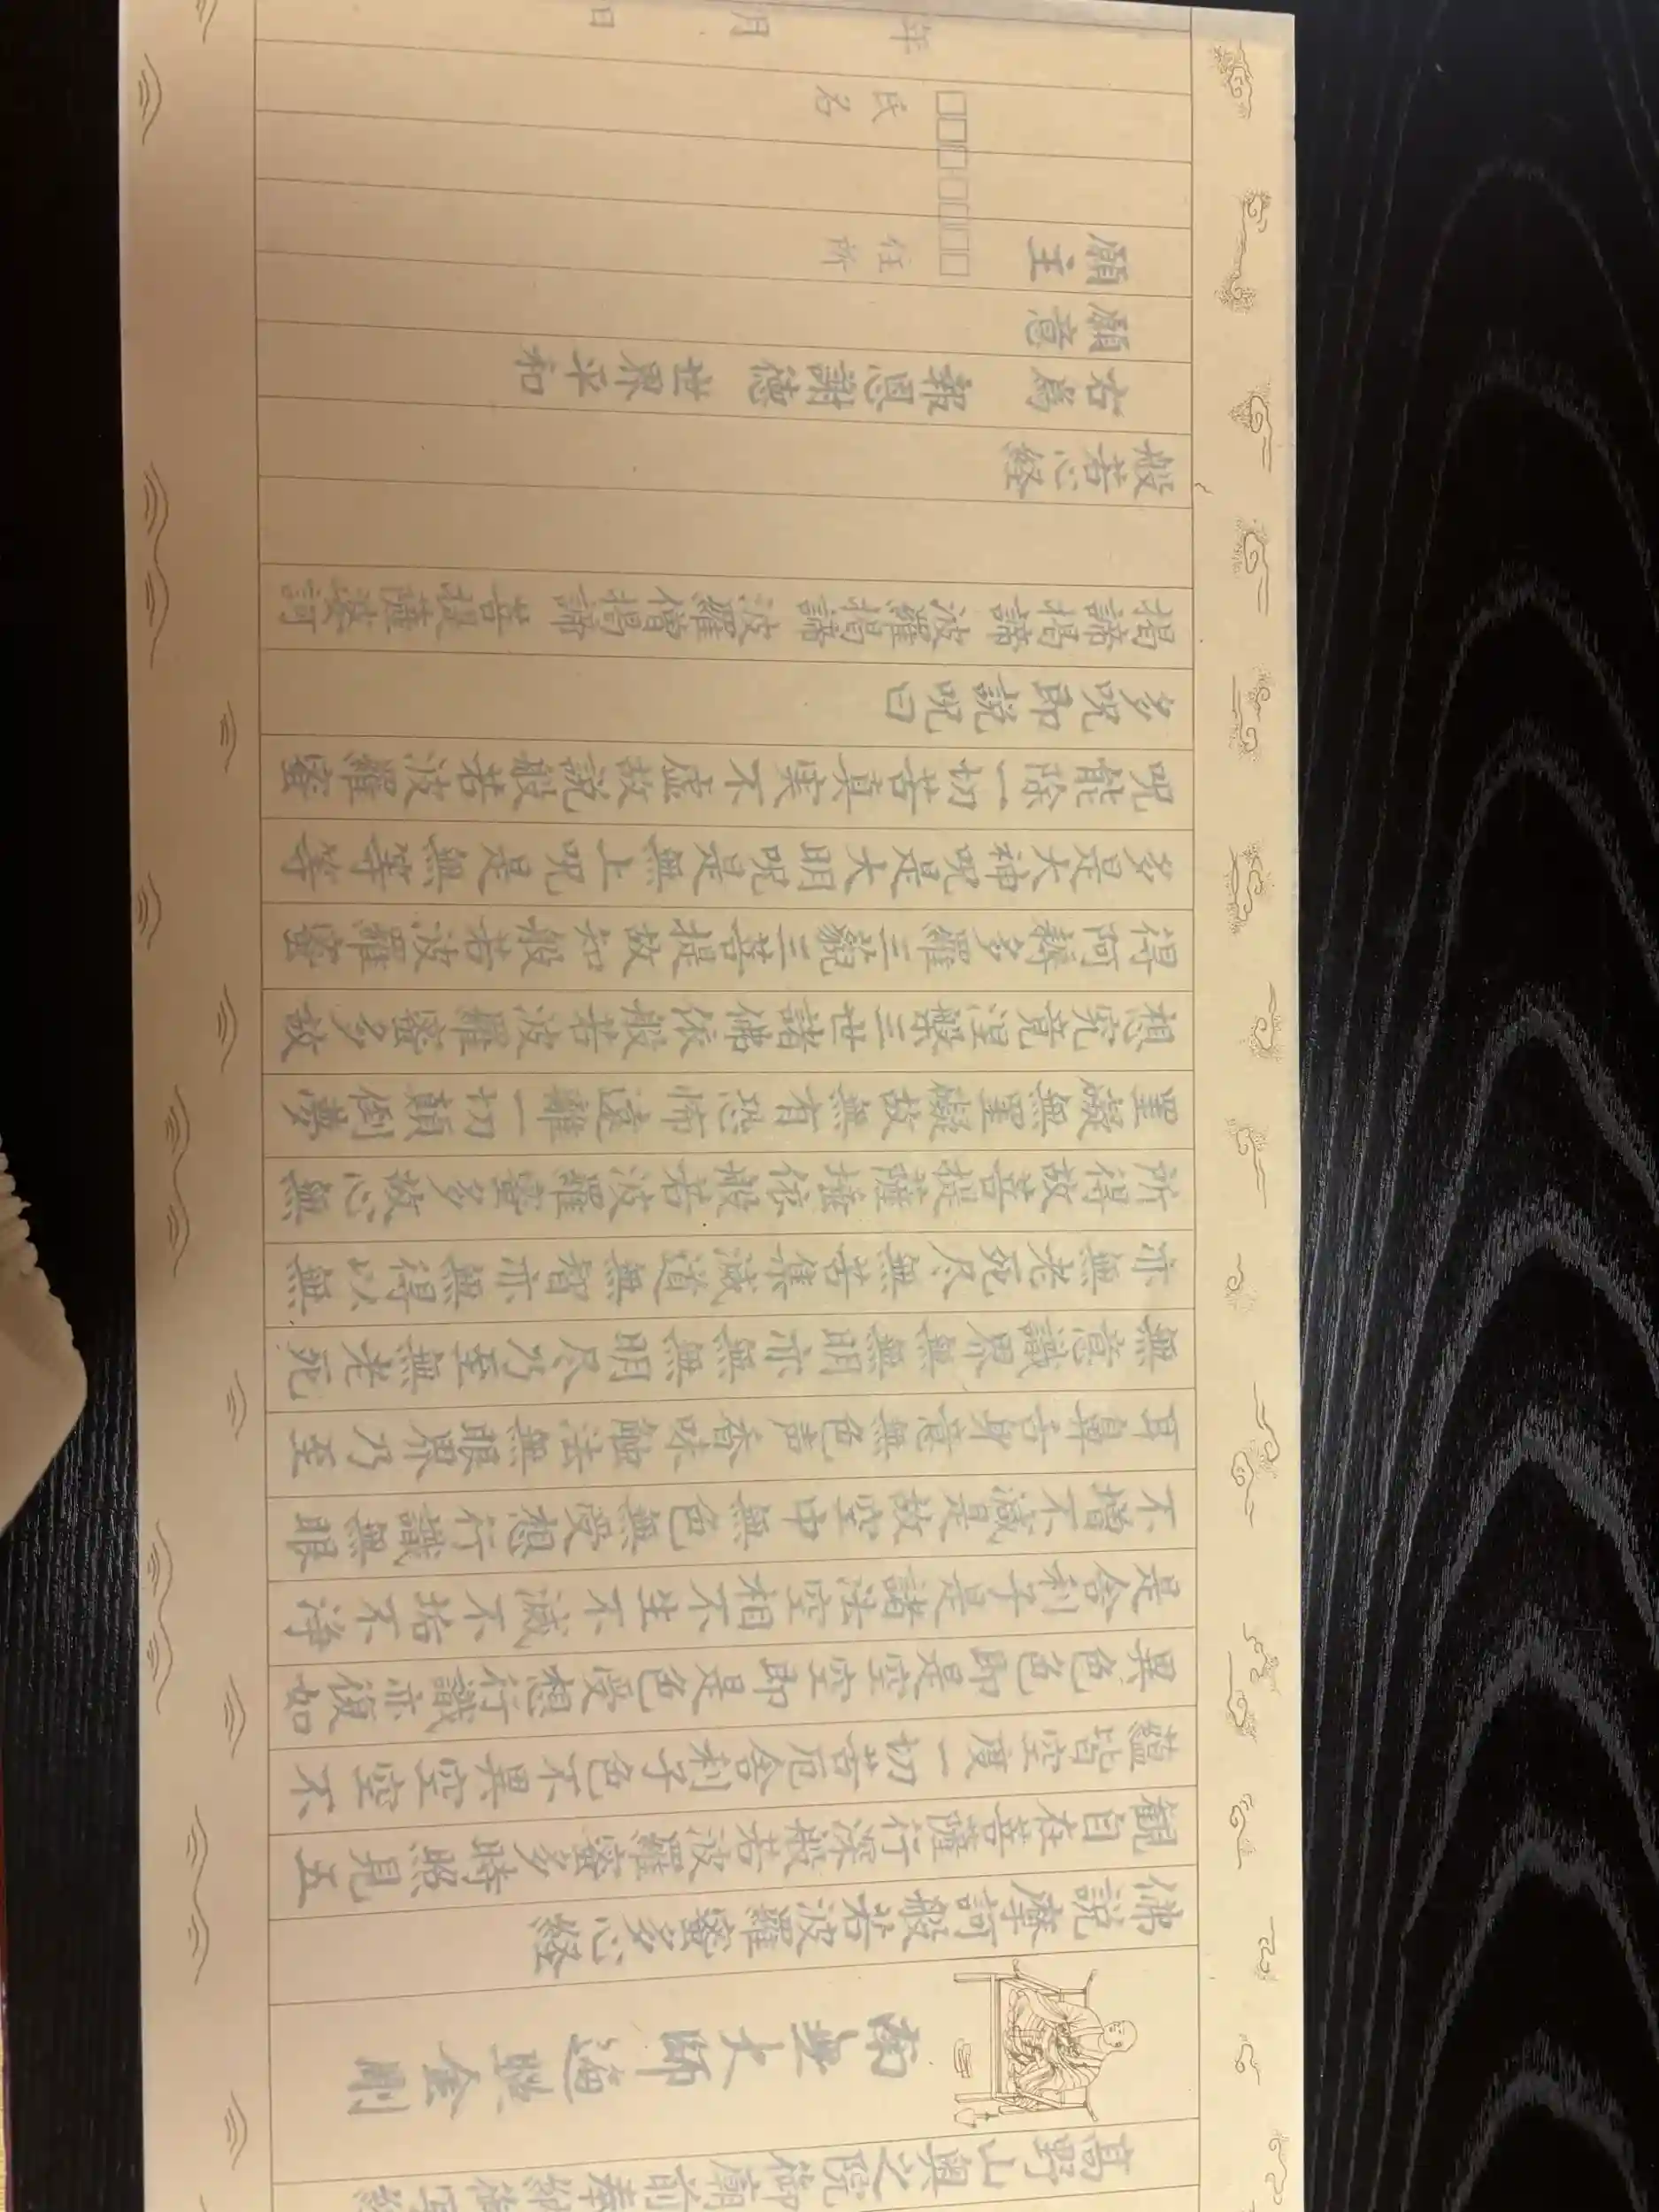 高野山奥之院御廟前奉納御写経
南無大師遍照金剛
佛説摩訶般若波羅蜜多心経
観自在菩薩行深般若波羅蜜多時照見五
蘊皆空度一切苦厄舎利子色不異空空不
異色色即是空空即是色受想行識亦復如
是舎利子是諸法空相不生不滅不垢不浄
不増不減是故空中無色無受想行識無眼
耳鼻舌身意無色声香味触法無眼界乃至
無意識界無無明亦無無明尽乃至無老死
亦無老死尽無苦集滅道無智亦無得以無
所得故菩提薩埵依般若波羅蜜多故心無
罣礙無罣礙故無有恐怖遠離一切顛倒夢
想究竟涅槃三世諸佛依般若波羅蜜多故
得阿耨多羅三藐三菩提故知般若波羅蜜
多是大神呪是大明呪是無上呪是無等等
呪能除一切苦真実不虚故説般若波羅蜜
多呪即説呪曰
揭諦揭諦 波羅揭諦 波羅僧揭諦 菩提薩婆訶
般若心経
右為 報恩謝徳 世界平和
願意
願主
住所
氏名
年 月 日